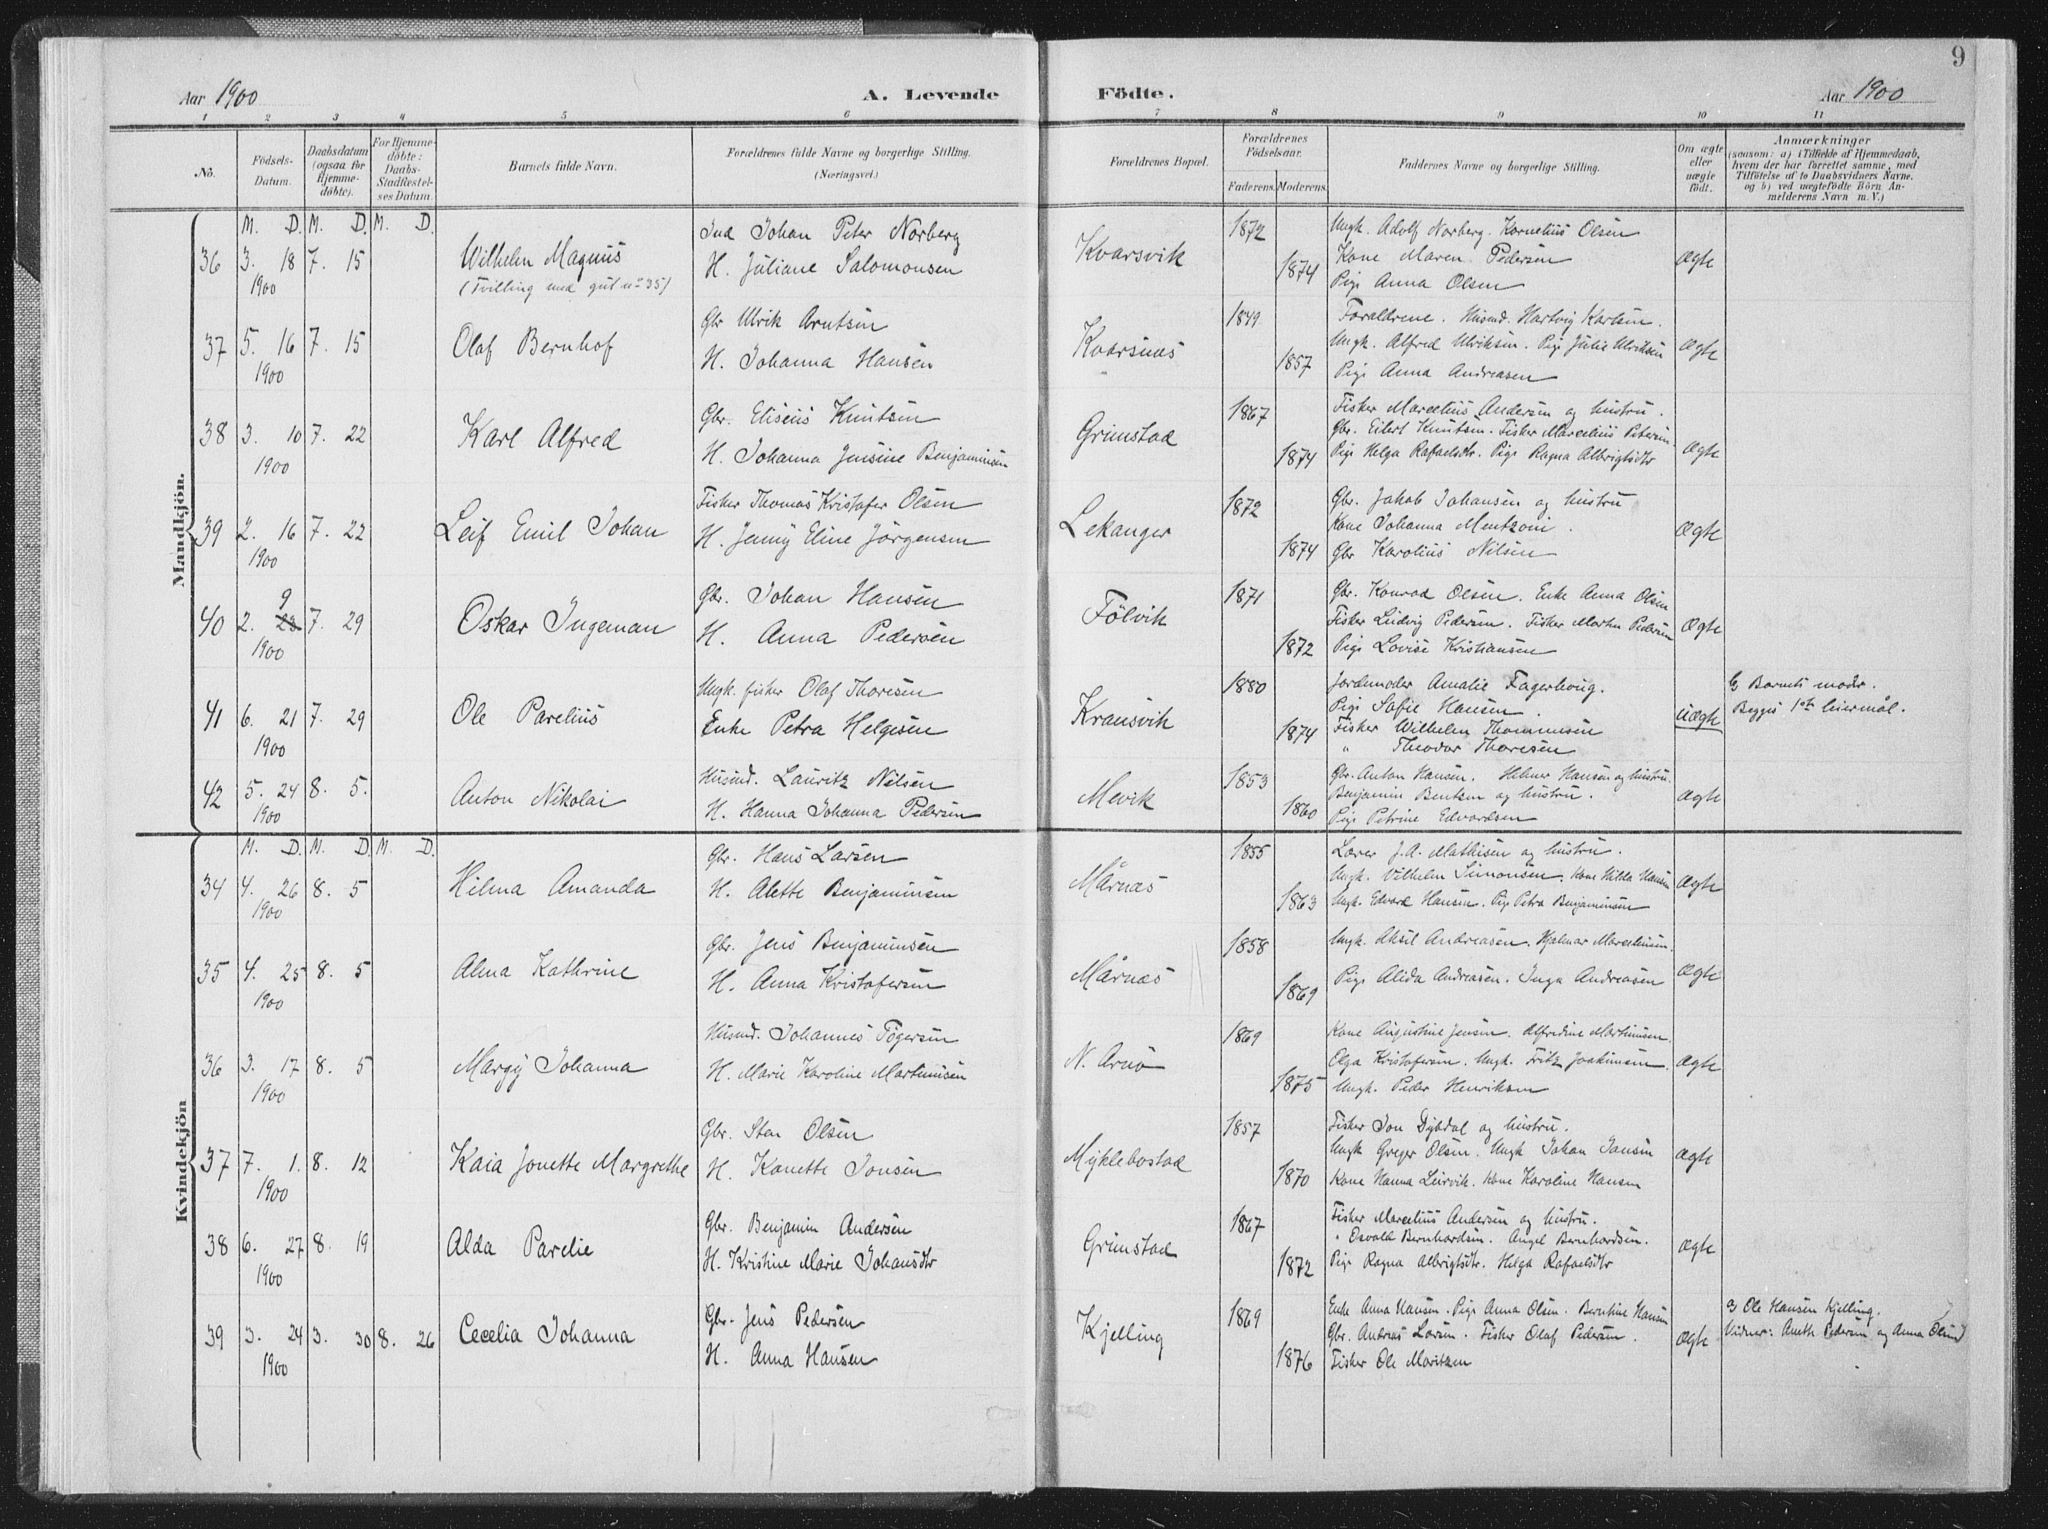 9
Aar 1900
A. Levende Födte.
Aar 1900
1 2 3 4 5 6 7 8 9 10 11
No.
Födsels-Datum.
Daabsdatum (ogsaa for Hjemmedöbte).
For Hjemmedöbte: Daabs-Stadfæstelses Datum.
Barnets fulde Navn.
Forældrenes fulde Navne og borgerlige Stilling. (Næringsvei.)
Forældrenes Bopæl.
Forældrenes Födselsaar.
Faderens. Moderens.
Faddernes Navne og borgerlige Stilling.
Om ægte eller uægte födt.
Anmærkninger
(saasom: a) i Tilfælde af Hjemmedaab, hvem der har forrettet samme, med Tilföielse af to Daabsvidners Navne. og b) ved uægtefödte Börn Anmelderens Navn m. V.)
Mandkjön.
M. D. M. D. M. D.
36 3. 18 7. 15
1900
Wilhelm Magnus
(Tvilling med gut no 35)
Ind Johan Peter Norberg
H. Juliane Salomonsen
Kvarsvik
1872
1874
Ungk. Adolf Norberg. Kornelius Olsen
Kone Maren Pedersen
Pige Anna Olsen
ægte
37 5. 16 7. 15
1900
Olaf Bernhof
Gbr Ulrik Arntsen
H. Johanna Hansen
Kvarsnes
1849
1857
Forældrene. Husmd. Hartvig Karlsen.
Ungk. Alfred Ulriksen. Pige Julie Ulriksen
Pige Anna Andreasen
ægte
38 3. 10 7. 22
1900
Karl Alfred
Gbr. Eliseus Knutsen
H. Johanna Jensine Benjaminsen
Grimstad
1867
1874
Fisker Marcelius Andersen og hustru.
Gbr. Eilert Knutsen. Fisker Marcelius Petersen.
Pige Helga Rafaelsdtr. Pige Ragna Albrigtsdtr
ægte
39 2. 16 7. 22
1900
Leif Emil Johan
Fisker Thomas Kristofer Olsen
H. Jenny Eline Jörgensen
Lekanger
1872
1874
Gbr. Jakob Johansen og hustru
Kone Johanna Mentzoni.
Gbr Karolius Nilsen
ægte
40 2. 23 9 7. 29
1900
Oskar Ingeman
Gbr. Johan Hansen
H. Anna Pedersen
Fölvik
1871
1872
Gbr. Konrad Olsen. Enke Anna Olsen
Fisker Ludvig Pedersen. Fisker Martin Pedersen
Pige Lovise Kristiansen
ægte
41 6. 21 7. 29
1900
Ole Parelius
Ungk. fisker Olaf Thoresen
Enke Petra Helgesen
Kransvik
1880
1874
Jordemoder Amalie Fagerhoug.
Pige Sofie Hansen.
Fisker Wilhelm Thommesen
" Theodor Thoresen
uægte
b) Barnets moder.
Begges 1ste leiermål.
42 5. 24 8. 5.
1900
Anton Nikolai
Husmd. Lauritz Nilsen
H. Hanna Johanna Pedersen
Mevik
1853
1860
Gbr. Anton Hansen. Hilmer Hansen og hustru.
Benjamin Bentzen og hustru.
Pige Petrine Edvardsen
ægte
Kvindekjön
M. D. M. D. M. D.
34 4. 26 8. 5
1900
Hilma Amanda
Gbr. Hans Larsen
H. Alette Benjaminsen
Mårnes
1855
1863
Lærer J. A. Mathisen og hustru.
Ungk. Vilhelm Simonsen. Kone Hilda Hansen
Ungk. Edvard Hansen. Pige Petra Benjaminsen
ægte
35 4. 25 8. 5
1900
Alma Kathrine
Gbr. Jens Benjaminsen
H. Anna Kristofersen
Mårnes
1858
1869
Ungk. Aksel Andreasen. Hjalmar Marceliusen.
Pige Alida Andreasen. Inga Andreasen
ægte
36 3. 17 8. 5
1900
Margy Johanna
Husmd. Johannes Tögersen
H. Marie Karoline Martinusen
N. Arnö
1869
1875
Kone Augustine Jensen. Alfredine Martinusen.
Olga Kristofersen. Ungk. Fritz Joakimsen.
Ungk. Peder Henriksen
ægte
37 7. 1. 8. 12
1900
Kaia Jonette Margrethe
Gbr. Sten Olsen
H. Kanette Jonsen
Myklebostad
1857
1870
Fisker Jon Dybdal og hustru.
Ungk Greger Olsen. Ungk Johan Jonsen
Kone Hanna Leirvik. Kone Karoline Hansen
ægte
38 6. 27 8. 19
1900
Alda Parelie
Gbr. Benjamin Andersen
H. Kristine Marie Johansdtr
Grimstad
1867
1872
Fisker Marcelius Andersen og hustru.
" Osvald Bernhardsen. Angel Bernhardsen.
Pige Ragna Albrigtsdtr. Helga Rafaelsdtr
ægte
39 3. 24 3. 30 8. 26
1900
Cecelia Johanna
Gbr. Jens Pedersen
H. Anna Hansen
Kjelling
1869
1876
Enke Anna Hansen. Pige Anna Olsen. Berntine Hansen
Gbr. Andreas Larsen. Fisker Olaf Pedersen.
Fisker Ole Moritzen
ægte
a) Ole Hansen Kjelling.
Vidner: Aneth. Pedersen og Anna Olsen